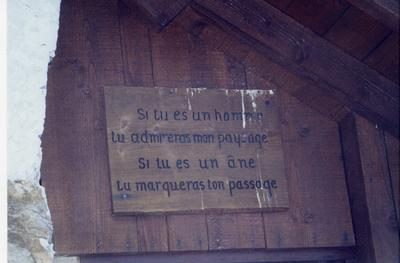 Si tu es un homme
tu admireras mon paysage
Si tu es un âne
tu marqueras ton passage